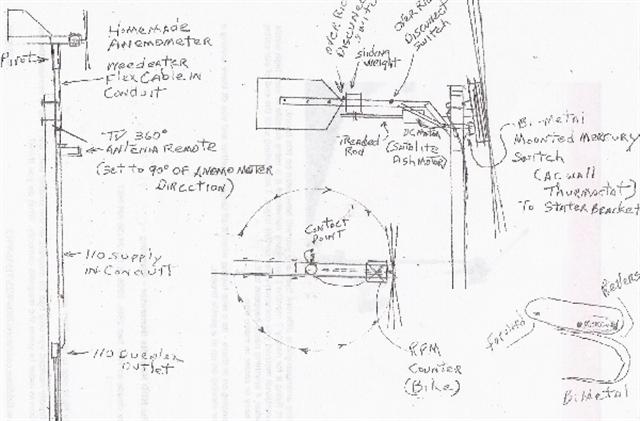 HOMEMADE
ANEMOMETER
Pivot
WeedeateR
FLex CabLe in
Conduit
TV 360°
ANTENNA REMOTE
(Set to 90° OF ANEMOMETER
DIRECTION)
110 SuppLy
in Conduit
110 DupLex
OutLet
OVER RIDE
DISCONNECT
Switch
SLiding
weight
OVER RIDE
DISCONNECT
Switch
Threaded
Rod
DC Motor
(SateLite
Dish MotoR)
Bi-MetaL
Mounted MeRcuRy
Switch
(A.C. waLL
Thermostat)
To StateR BRacket
Contact
Point
RPM
COUNTER
(Bike)
FoRwaRd
ReveRs
BiMetaL